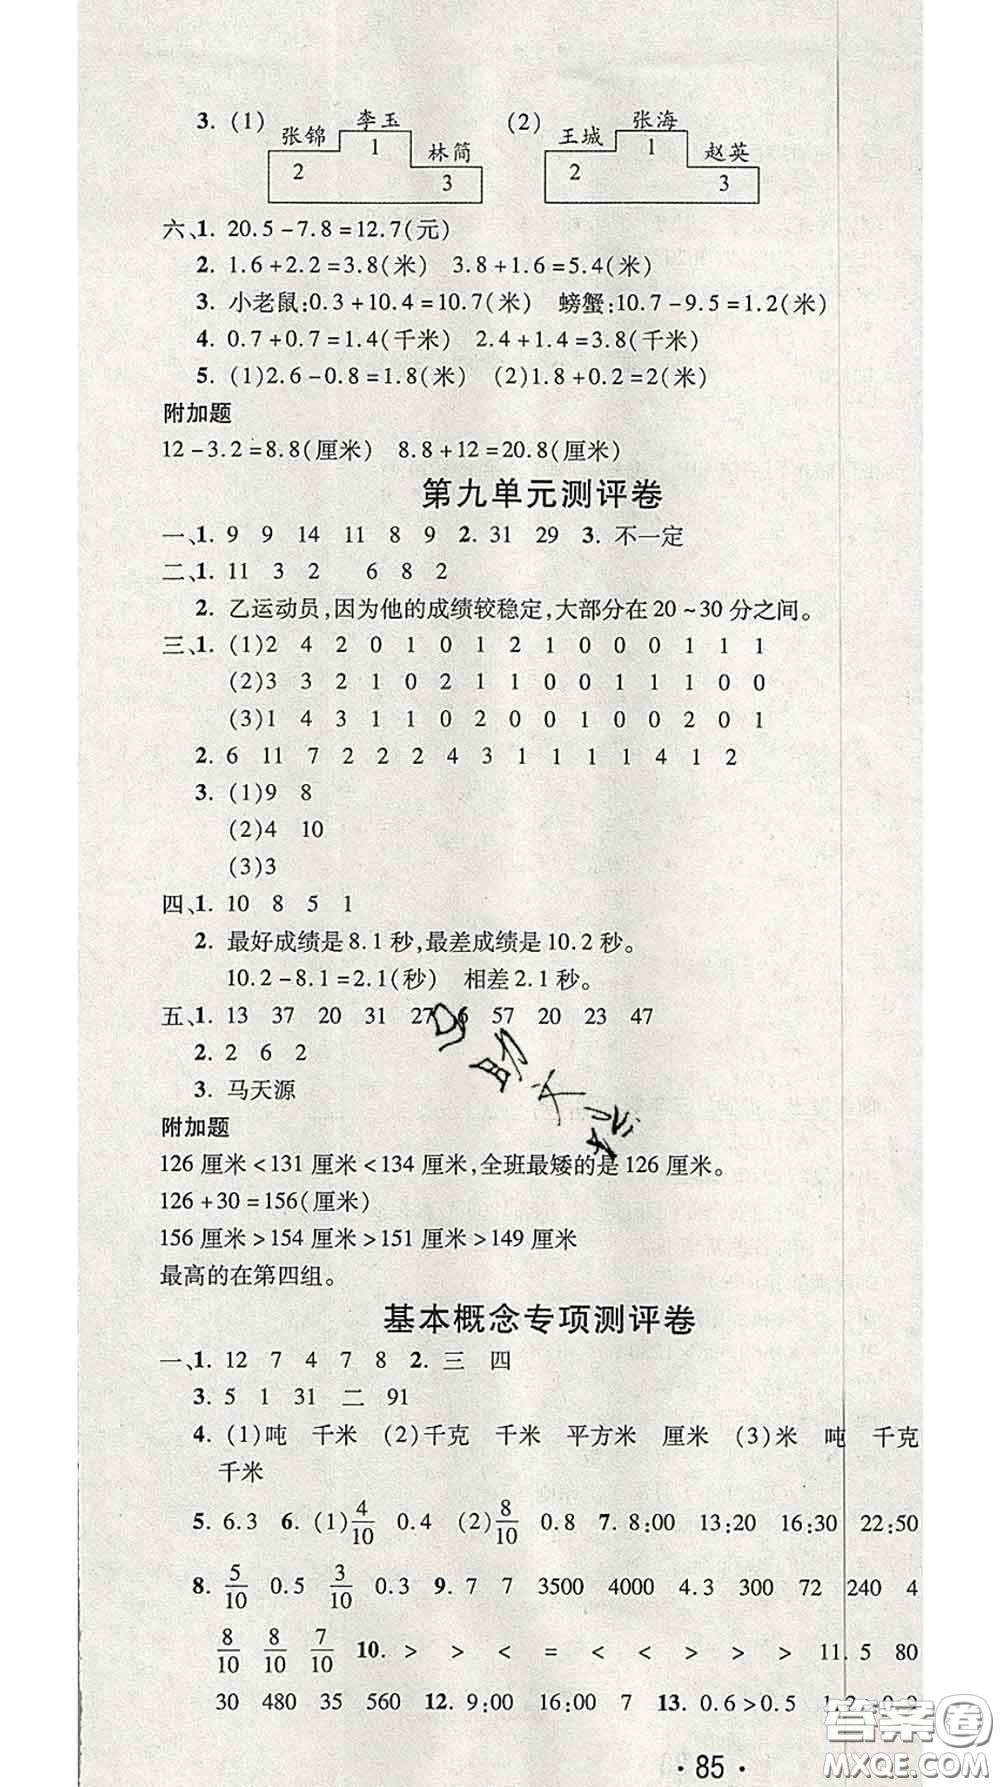 3. (1) 张锦 李玉 林简 2 1 3 (2) 王城 张海 赵英 2 1 3
六、1. 20.5-7.8=12.7(元)
2. 1.6+2.2=3.8(米) 3.8+1.6=5.4(米)
3. 小老鼠:0.3+10.4=10.7(米) 螃蟹:10.7-9.5=1.2(米)
4. 0.7+0.7=1.4(千米) 2.4+1.4=3.8(千米)
5. (1)2.6-0.8=1.8(米) (2)1.8+0.2=2(米)
附加题
12-3.2=8.8(厘米) 8.8+12=20.8(厘米)
第九单元测评卷
一、1. 9 9 14 11 8 9 2. 31 29 3. 不一定
二、1. 11 3 2 6 8 2
2. 乙运动员,因为他的成绩较稳定,大部分在20~30分之间。
三、1. (1)2 4 2 0 1 0 1 2 1 0 0 0 1 1 1
(2)3 3 2 1 0 2 1 1 0 0 1 1 1 0 0
(3)1 4 3 1 1 0 2 0 0 1 0 0 2 0 1
2. 6 11 7 2 2 2 4 3 1 1 1 1 4 1 2
3. (1)9 8
(2)4 10
(3)3
四、1. 10 8 5 1
2. 最好成绩是8.1秒,最差成绩是10.2秒。
10.2-8.1=2.1(秒) 相差2.1秒。
五、1. 13 37 20 31 27 6 57 20 23 47
2. 2 6 2
3. 马天源
附加题
126厘米<131厘米<134厘米,全班最矮的是126厘米。
126+30=156(厘米)
156厘米>154厘米>151厘米>149厘米
最高的在第四组。
基本概念专项测评卷
一、1. 12 7 4 7 8 2. 三 四
3. 5 1 31 二 91
4. (1)吨 千米 (2)千克 千米 平方米 厘米 (3)米 吨 千克
千米
5. 6.3 6. (1)4/10 0.4 (2)8/10 0.8 7. 8:00 13:20 16:30 22:50
8. 5/10 0.5 3/10 0.3 9. 7 7 3500 4000 4.3 300 72 240 4
8/10 8/10 7/10 10. > > < = < < > > > 11. 5 80
30 480 35 560 12. 9:00 16:00 7 13. 0.6>0.5
答案卷
MXQE.COM
· 85 ·